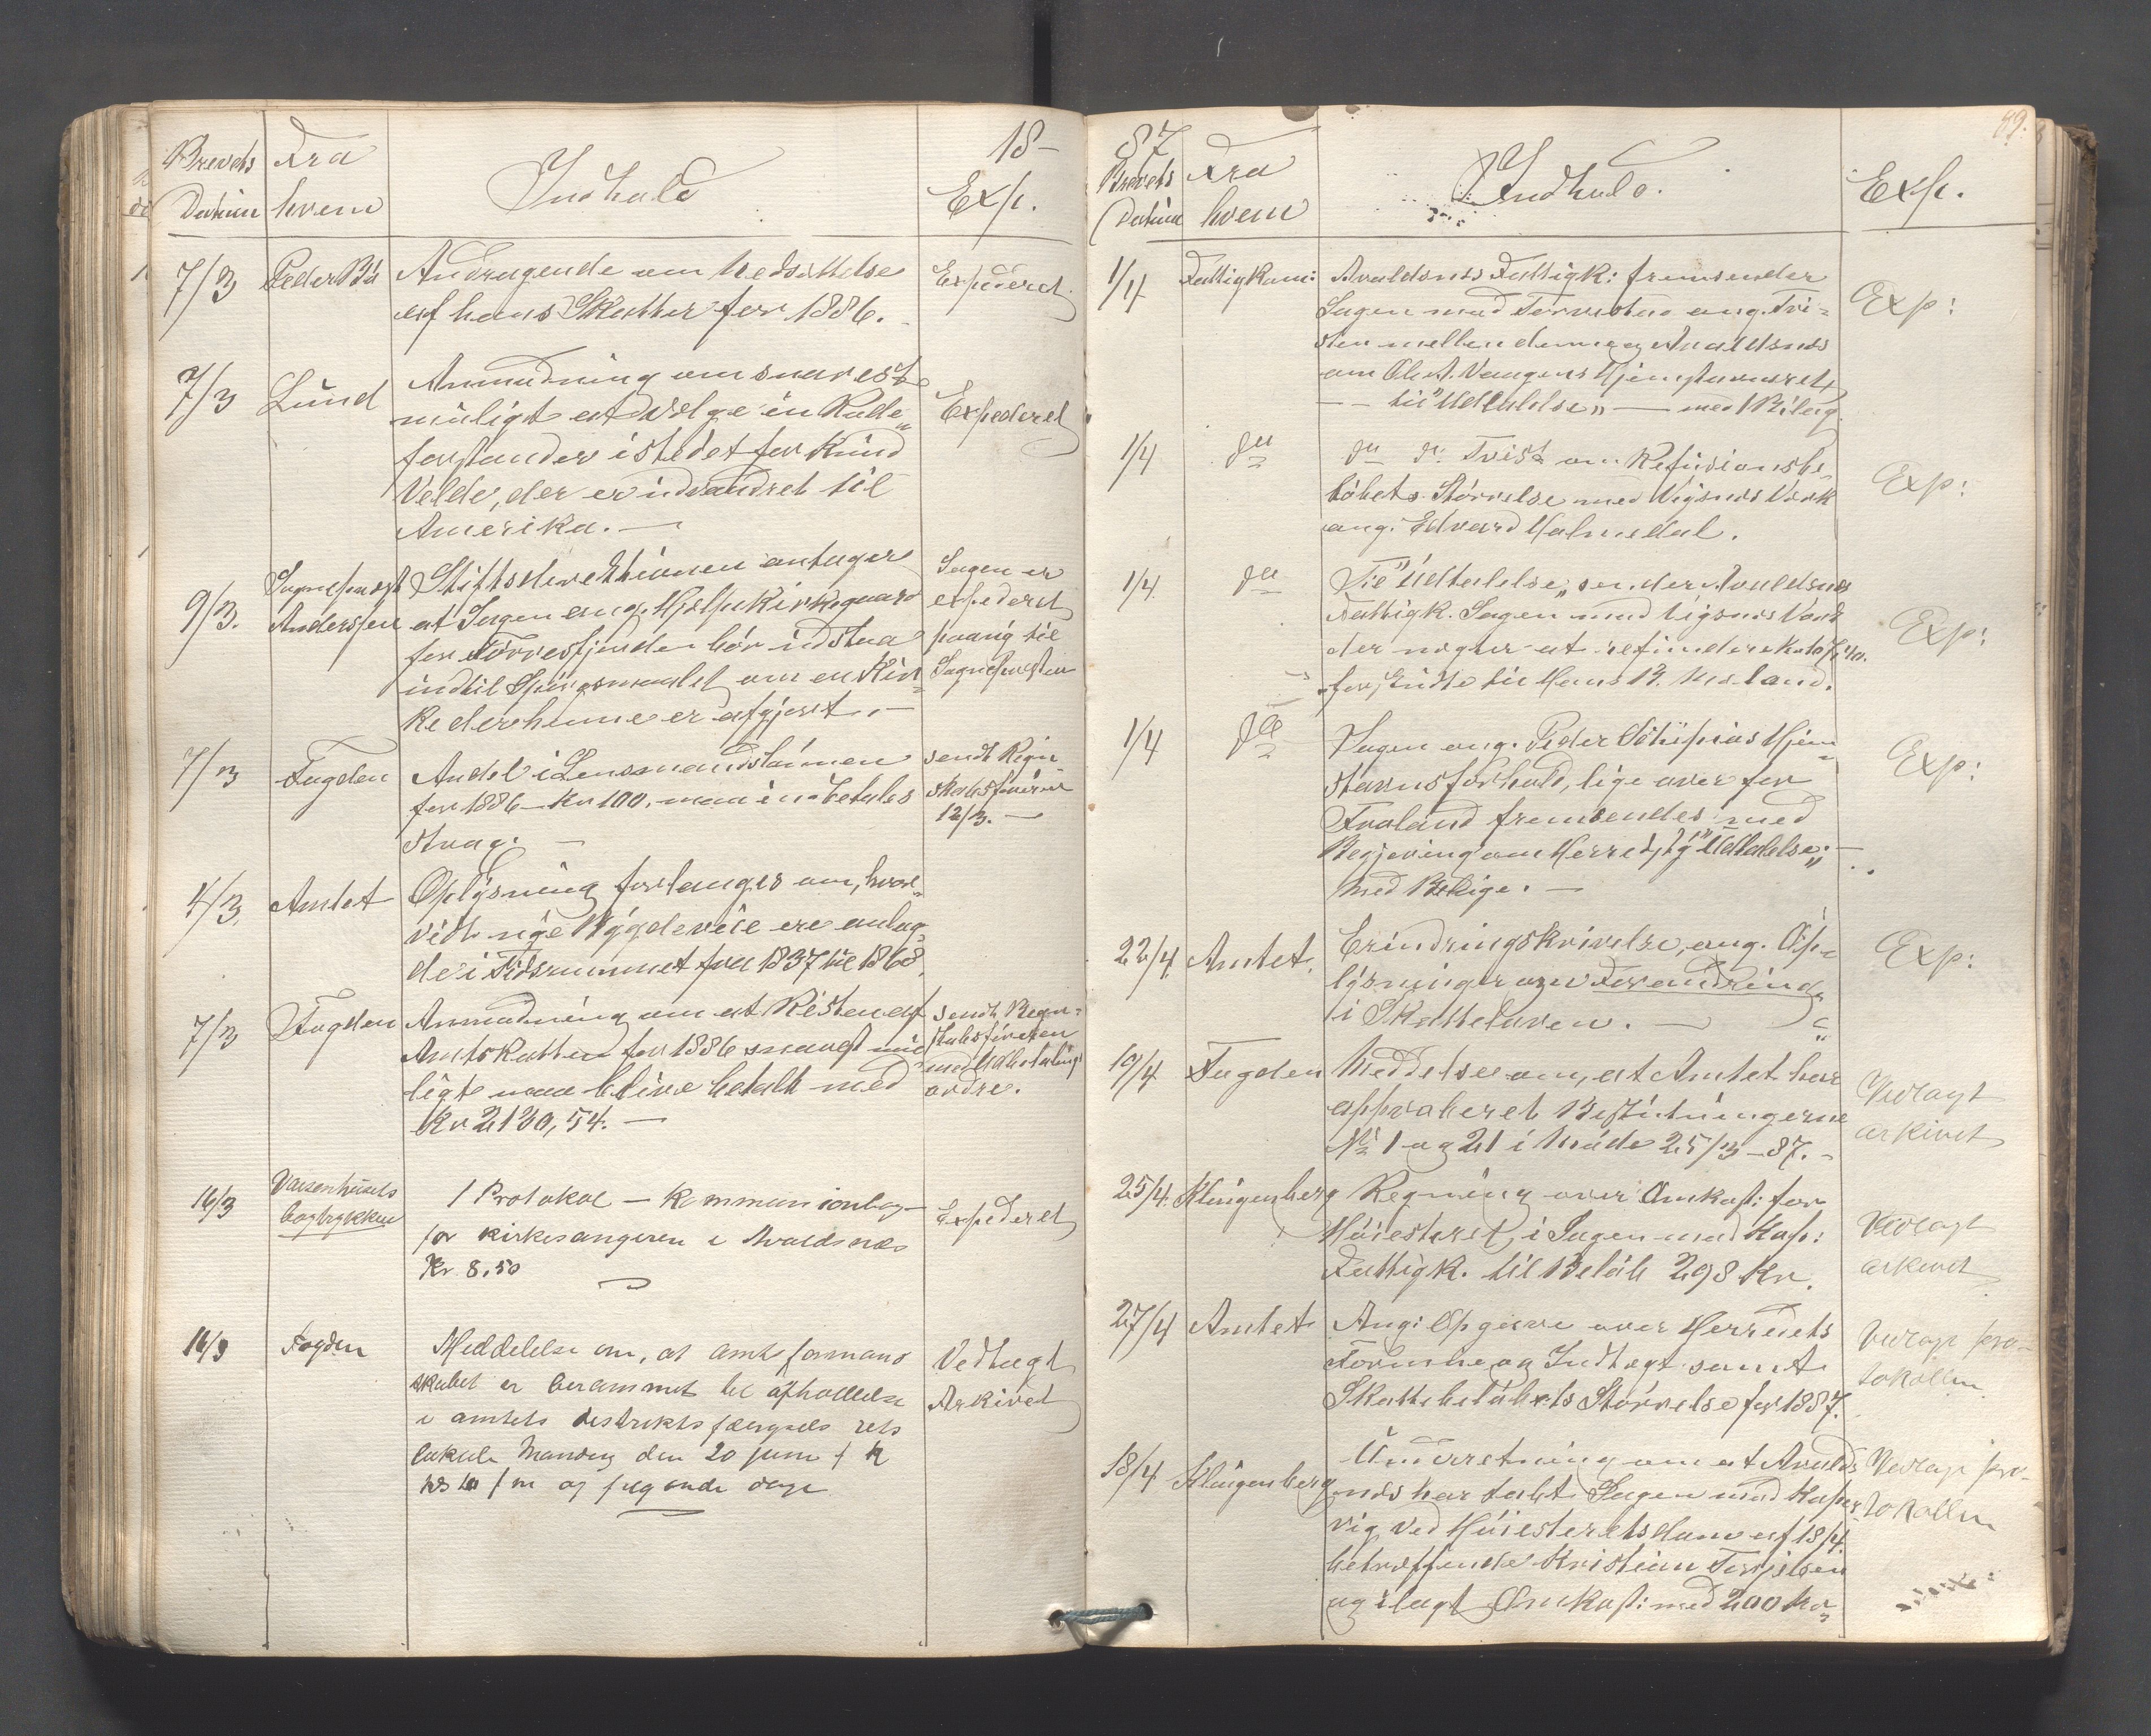 18-
Brevets Fra
Datum hvem Indhold Exp.
7/3 Peder Bø Andragende om Nedsættelse Expederet.
af hans Skatter for 1886.
7/3 Lund Anmodning om snarest Expederet
muligt at vælge en Rode-
forstander istedet for Knud
Velde, der er udvandret til
Amerika. —
9/3. Sogneprest Stiftsdirektionen antager Sagen er
Anderssen at Sagen ang. Hjelpekirkegaard expederet
for Førresfjorden bør udstaa paany til
indtil Spørgsmaalet om en Kir- Sognepresten
ke derhenne er afgjort. —
7/3 Fogden Andel i Lensmandslønnen sendt Regn-
for 1886 — Kr 100, maa indbetales skabsfører
strax. — 12/3. —
4/3. Amtet Oplysning forlanges om, hvor-
vidt nye Bygdeveie ere anlag-
de i Tidsrummet fra 1837 til 1868.
7/3 Fogden Anmodning om at Resten af sendt Regn-
Amtskatten for 1886 snarest mu- skabsføreren
ligt maa blive betalt med med Udbetalings
Kr 2130,54. — ordre.
16/3 Vaisenhusets 1 Protokol — Kommunionbog — Expederet
bogtrykkeri for kirkesangeren i Avaldsnes
Kr. 8,50
16/3 Fogden Meddelelse om, at amtsformand Vedlagt
skabet er berammet til afholdelse Arkivet
i amtets distriktsfængsels rets
lokale Mandag den 20 juni
og følgende dage
87 89.
Brevets Fra
Datum hvem Indhold. Exp.
1/4 Fattigkom: Avaldsnes Fattigk: fremsender Exp:
Sagen med Torvestad ang. Tvi-
sten mellem dem og Avaldsnes
om Ole A. Vangens Hjemstavnsret,
— til "Udtalelse" — med 1 Bilag.
1/4 do do do Tvist om Refusionsbe- Exp:
løbets Størrelse med Vigsnes Værk
ang. Edvard Halmedal.
1/4. do Til "Udtalelse" sender Avaldsnes Exp:
Fattigk. Sagen med Vigsnes Værk
der nægter at refundere
for, til Hans B. Mæland.
1/4 do Sagen ang. Peder Hjem- Exp:
stavnsforhold, lige over for
Froland fremsendes med
Begjering om Herredst's "Udtalelse". —
med Bilage. —
22/4 Amtet. Erindringskrivelse, ang. Op- Exp:
lysninger om Forandring
i Skatteloven. —
19/4 Fogden Meddelse om, at Amtet har Vedlagt
approberet Beslutningerne arkivet
No 1 og 21 i Møde 25/3 — 87. —
25/4. Klingenberg Regning over Omkost: for Vedlagt
Høiesteret, i Sagen mod Kop: arkivet
Fattigk. til Beløb 298 Kr.
27/4 Amtet Ang: Opgave over Herredets Vedlagt pro-
Formue og Indtægt samt tokollen.
Skattebeløbets Størrelse for 1887.
18/4 Klingenberg Underretning om at Avalds- Vedlagt pro-
nes har tabt Sagen mod Koper- tokollen
vig ved Høiesteretsdom af 18/4.
betræffende Kristian Terjesen
og ilagt Omkost: med 200 Kr.